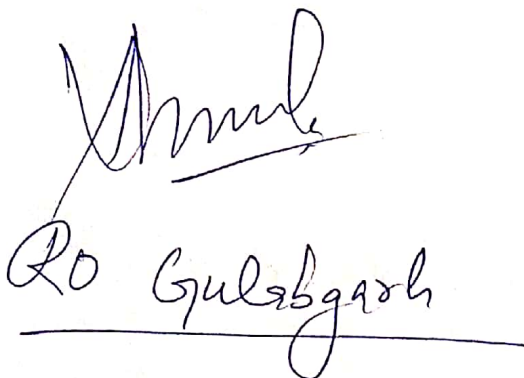 RO Gulabgarh